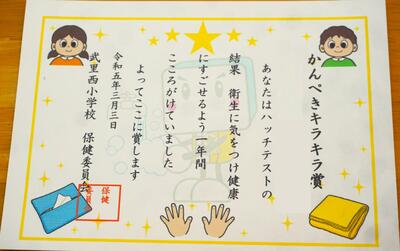 かんぺきキラキラ賞
あなたはハッチテストの
結果　衛生に気をつけ健康
にすごせるよう一年間
こころがけていました
よってここに賞します
令和五年三月三日
武里西小学校　保健委員会
保健
委員